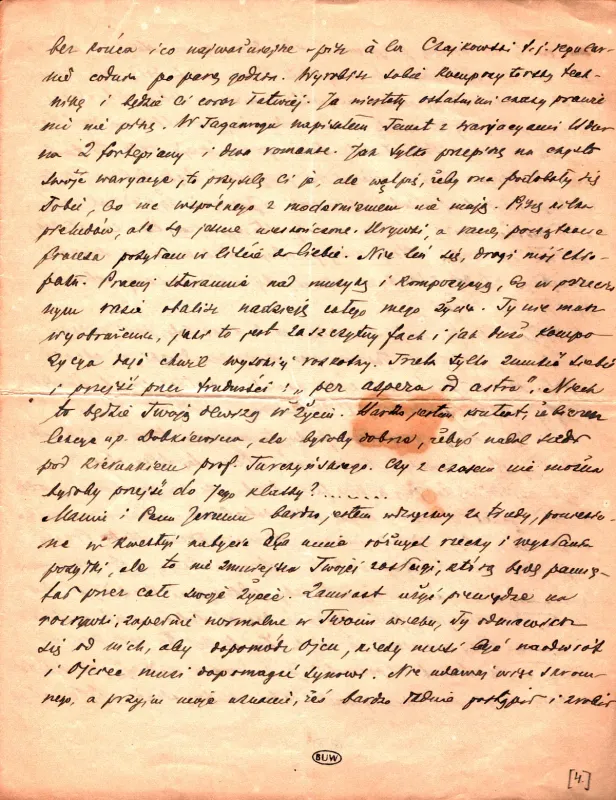 bez końca i co najważniejsze – pisz à la Czajkowski t. j. regular-
nie codzień po parę godzin. Wyrobisz sobie kompozytorską tech-
nikę i będzie Ci coraz łatwiej. Ja niestety ostatnimi czasy prawie
nic nie piszę. W Taganrogu napisałem Temat z warjacyami
na 2 fortepiany i dwa romanse. Jak tylko przepiszę na czysto
swoje waryacye, to przyślę Ci je, ale wątpię, żeby one podobały się
Tobie, bo nic wspólnego z modernizmem nie mają. Piszę kilka
preludów, ale są jeszcze nieskończone. Urywki, a raczej początkowe
poszyłam w liście do Ciebie. Nie leń się, drogi mój chło-
paku. Pracuj starannie nad muzyką i kompozycyą, bo w przeciw-
nym razie obalisz nadzieję całego mego życia. Ty nie masz
wyobrażenia, jaki to jest zaszczytny fach i jak dużo kompo-
zycya daje chwil wysokiej rozkoszy. Trzeba tylko zmusić siebie
i przejść przez trudności! „per aspera ad astra". Niech
to będzie Twoją dewizą w życiu. Bardzo jestem kontent, że bierzesz
lekcye u p. Dobkiewicza, ale byłoby dobrze, żebyś nadal
pod kierunkiem prof. Turczyńskiego. Czy z czasem nie można
byłoby przejść do Jego klassy? ........
Mamie i Panu Jerzemu bardzo jestem wdzięczny za trudy, poniesio-
ne w kwestyi nabycia dla mnie różnych rzeczy i wysłania
posyłki, ale to nie zmniejsza Twojej zasługi, którą będę pamię-
tał przez całe swoje życie. Zamiast użyć pieniądze na
rozrywki, zupełnie normalne w Twoim wieku, Ty odmawiasz
się od nich, aby dopomódz Ojcu, kiedy musi być naodwrót
i Ojciec musi dopomagać synowi. Nie udawaj więc skrom-
nego, a przyjm moje uznanie, żeś bardzo ładnie postąpił i zrobił
BUW
[4.]